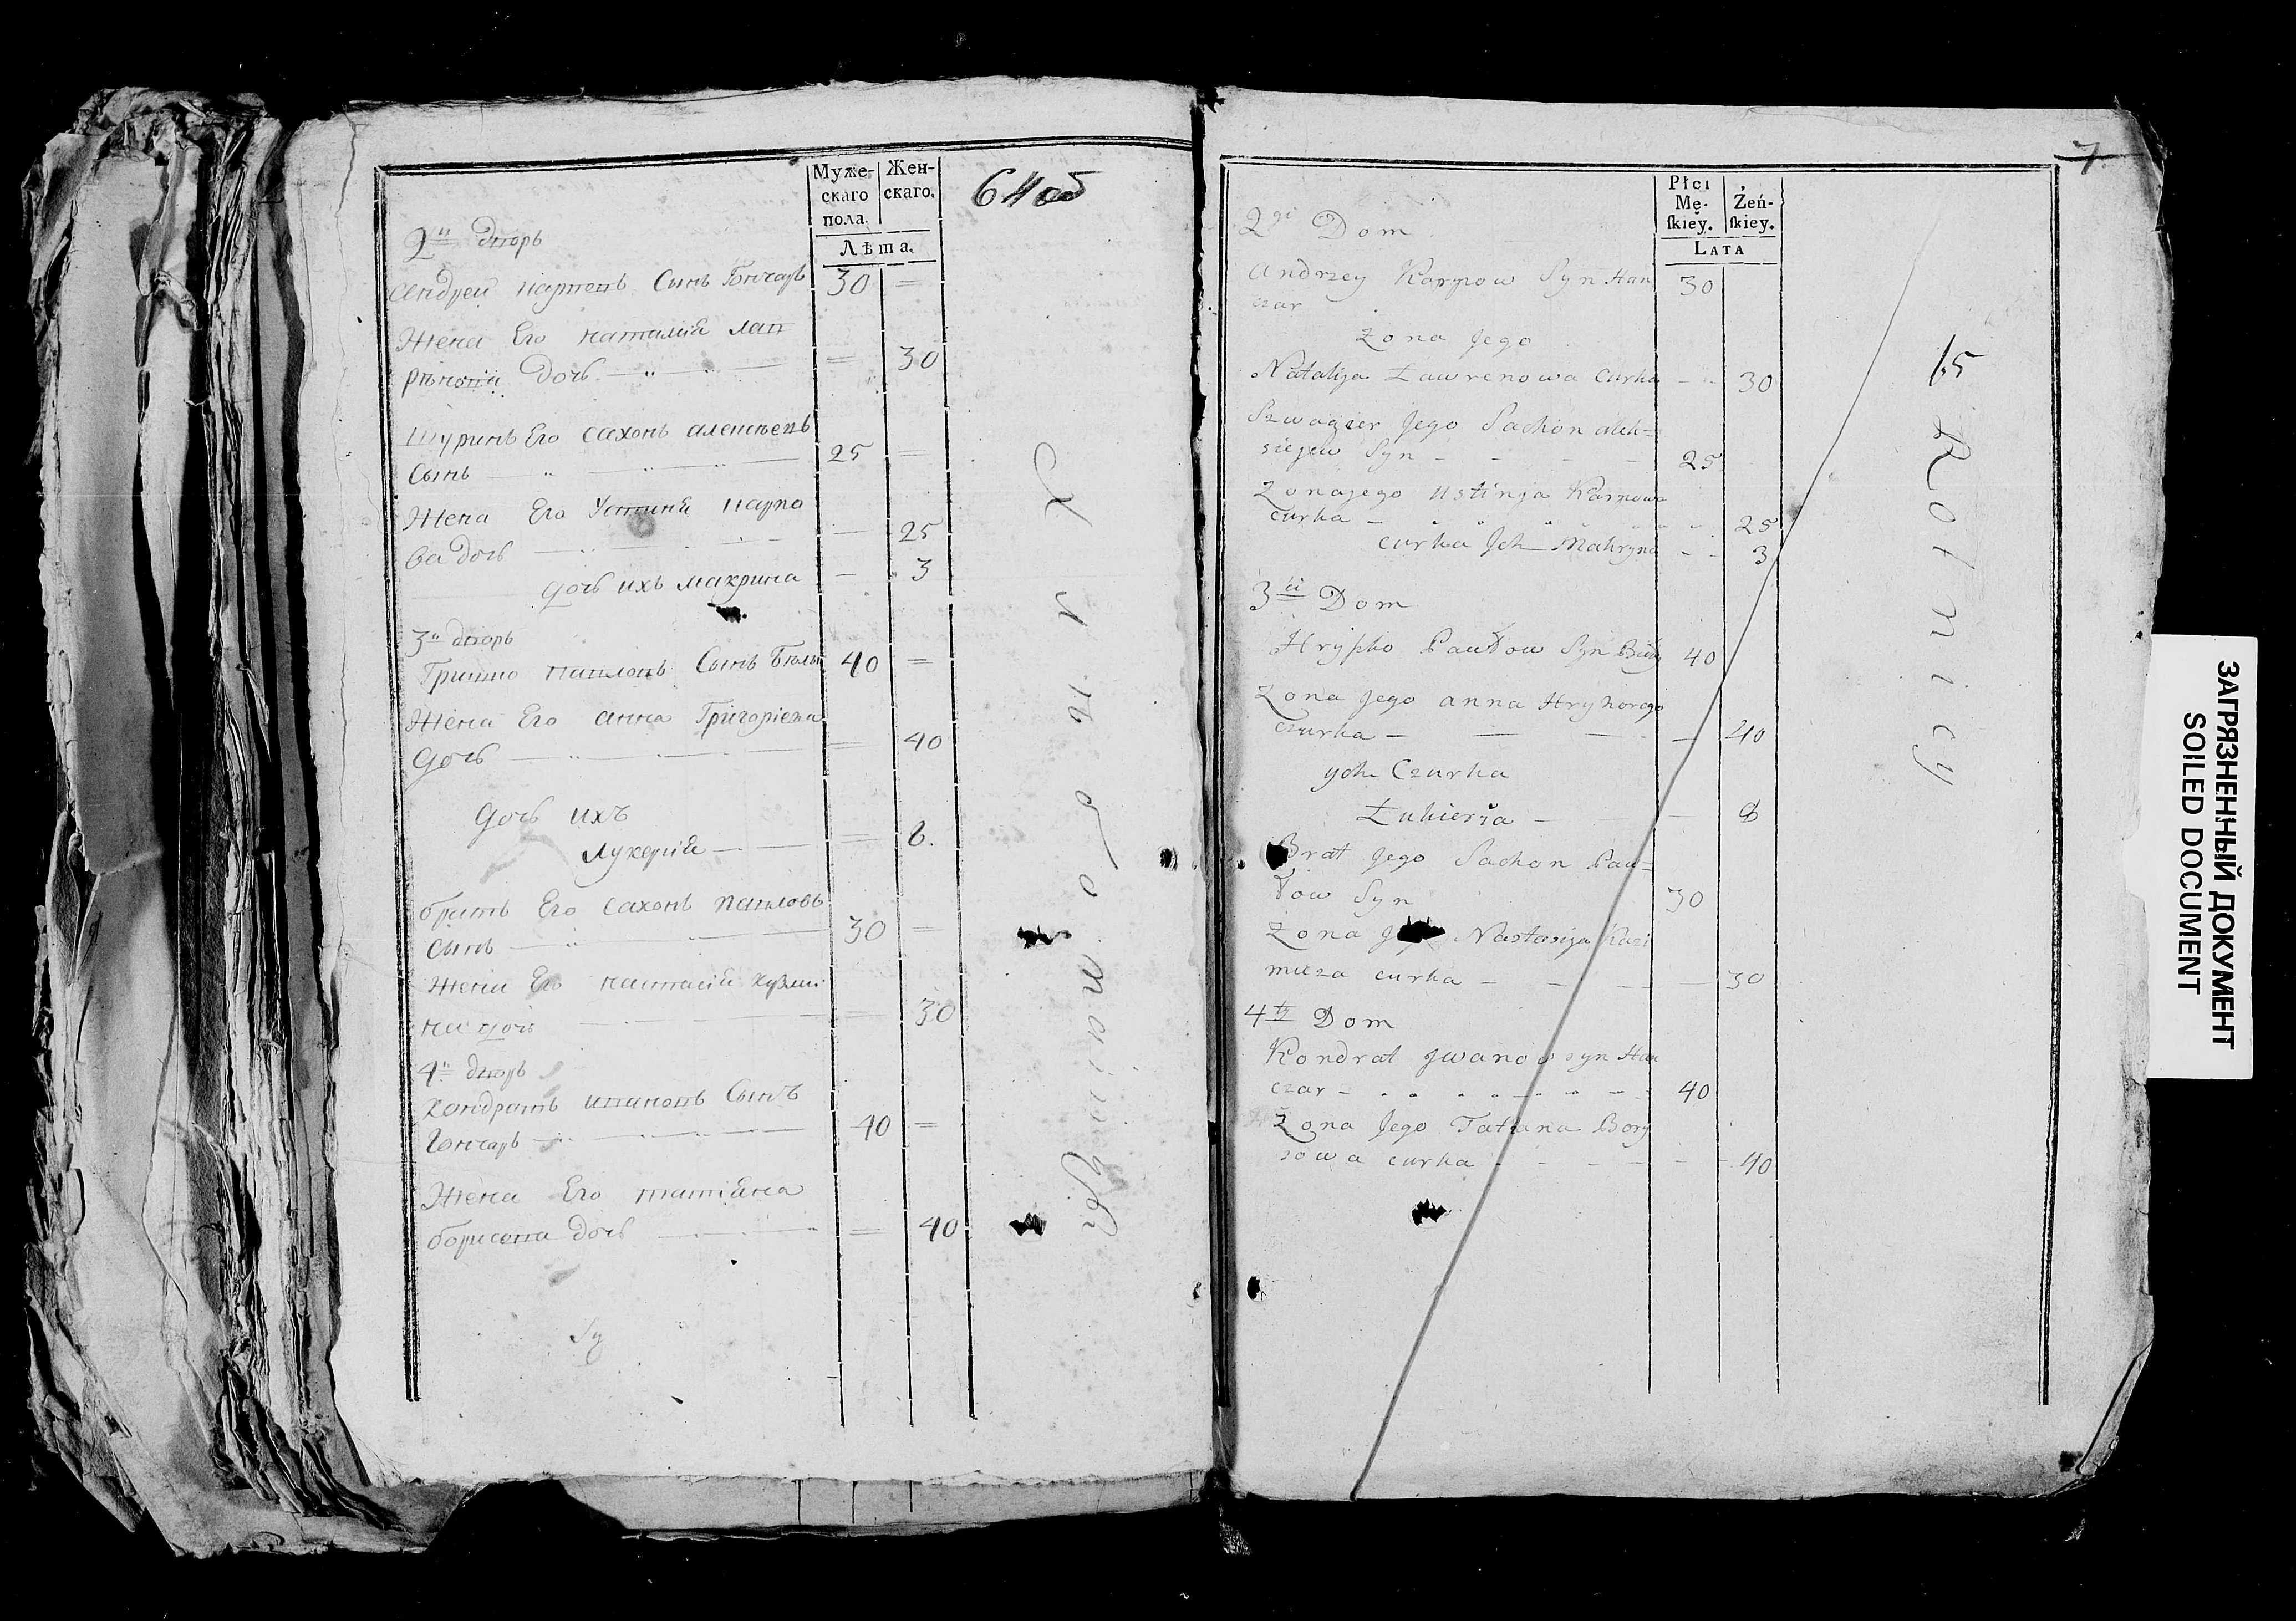 Муже-
скаго
пола.
Жен-
скаго.
Лѣта.
64об
2й дворъ
Андрей карповъ Сынъ Гончаръ 30 =
Жена Его наталия лав
рѣнова Дочь = 30
Шуринъ Его сахонъ алексѣевъ
Сынъ 25 =
Жена Его Устиния карпо
ва дочь 25
дочь ихъ макрина 3
3й дворъ
Гришко павловъ Сынъ 40 =
Жена Его анна Григориева
Дочь 40
Дочь ихъ
лукерия 8.
братъ Его сахонъ павловъ
сынъ 30 =
Жена Его настасия кузми
на дочь 30
4й дворъ
кондратъ ивановъ Сынъ
Гончаръ 40 =
Жена Его татияна
борисова дочь = 40
Хлѣбопашцы
7
Płci
Mę-
ſkiey.
Żeń-
ſkiey.
LATA
2gi Dom
Andrzey Karpow Syn Han
czar 30
Zona Jego
Natalija Ławrenowa Curka 30
Szwagier Jego Sachon alek=
siejew Syn 25
Zona jego Ustinja Karpowa
curka 25
curka Jch Makryna 3
3ci Dom
Hryszko Pawłow Syn 40
Zona Jego anna Hryhorego
Czurka 40
ych Czurka
Łukieria 8
Brat Jego Sachon Paw=
łow Syn 30
Zona Nastasija Kuzi
micza curka 30
4ty Dom
Kondrat Jwanow syn Han
czar 40
Zona Jego Tatiana Bory
sowa curka 40
15
Rolnicy
ЗАГРЯЗНЕННЫЙ ДОКУМЕНТ
SOILED DOCUMENT